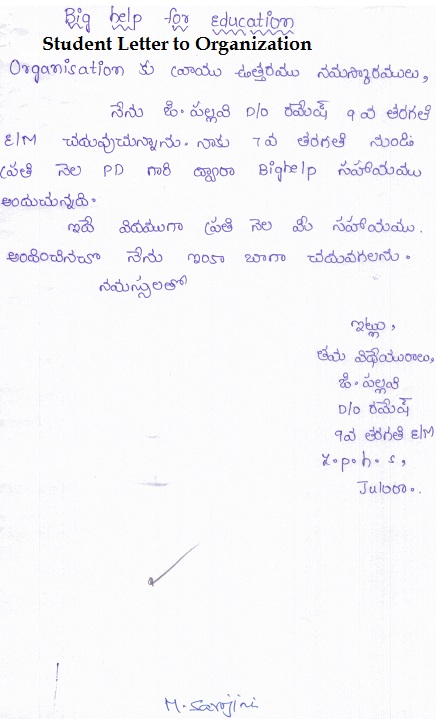 Big help for Education
Student Letter to Organization
Organisation కు వ్రాయు ఉత్తరము నమస్కారములు,
నేను జి. పల్లవి D/O రమేష్ 9 వ తరగతి
E/M చదువుచున్నాను. నాకు 7వ తరగతి నుండి
ప్రతి నెల PD గారి ద్వారా Bighelp సహాయము
అందుచున్నది.
ఇదే విదముగా ప్రతి నెల మీ సహాయము.
అందించినచో నేను ఇంకా బాగా చదువగలను.
నమస్సులతో
ఇట్లు,
తమ విధేయురాలు,
జి. పల్లవి
D/O రమేష్
9వ తరగతి E/M
Z.p.h.s,
M. Sarojini